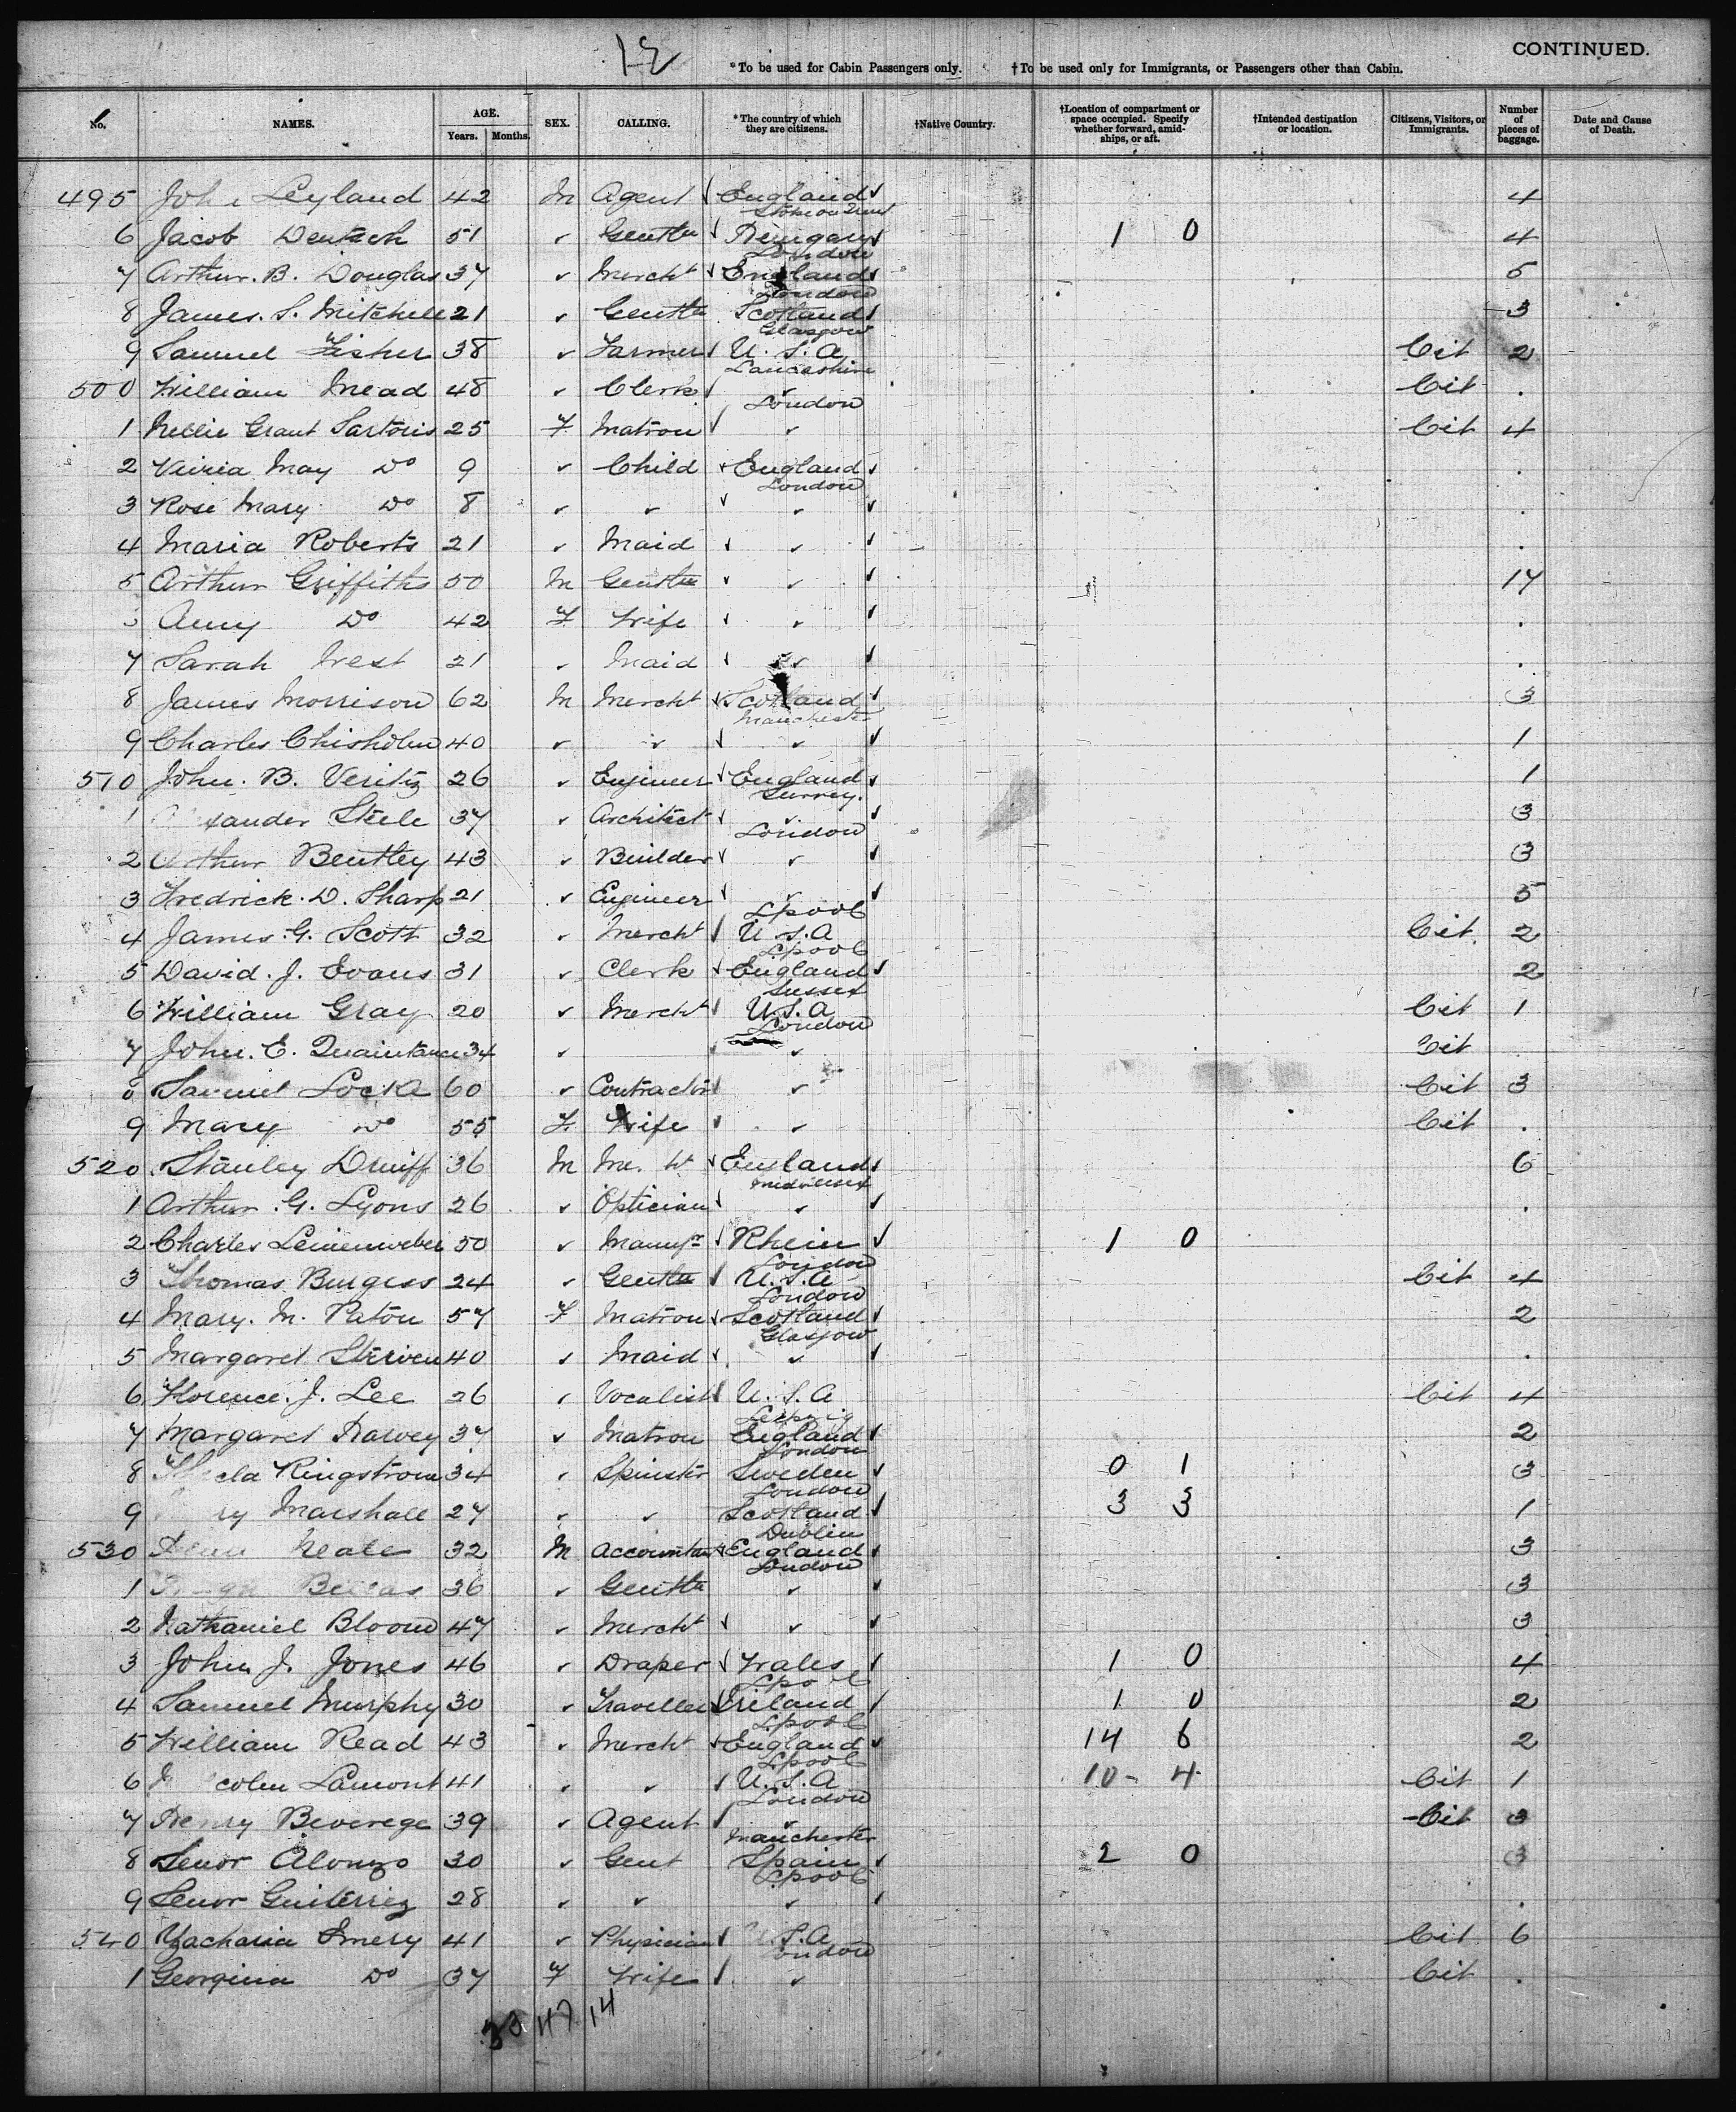 12
CONTINUED.
*To be used for Cabin Passengers only. †To be used only for Immigrants, or Passengers other than Cabin.
No. NAMES. AGE. Years. Months. SEX. CALLING. *The country of which they are citizens. †Native Country. †Location of compartment or space occupied. Specify whether forward, amidships, or aft. †Intended destination or location. Citizens, Visitors, or Immigrants. Number of pieces of baggage. Date and Cause of Death.
495 John Leyland 42 M Agent ✓ England ✓ 4
Stoke on Trent
6 Jacob Deutsch 51 ✓ Gentln ✓ Hungary ✓ 1 0 4
London
7 Arthur. B. Douglas 37 ✓ Mercht ✓ England ✓ 5
London
8 James. S. Mitchell 21 ✓ Gentln Scotland ✓ 3
Glasgow
9 Samuel Fisher 38 ✓ Farmer ✓ U. S. A Cit 2
Lancashire
500 William Mead 48 ✓ Clerk ✓ ✓ Cit .
London
1 Nellie Grant Sartoris 25 F Matron ✓ ✓ Cit 4
2 May Do 9 ✓ Child ✓ England ✓ .
London
3 Rose Mary Do 8 ✓ ✓ ✓ ✓ ✓ .
4 Maria Roberts 21 ✓ Maid ✓ ✓ ✓ .
5 Arthur Griffiths 50 M Gentln ✓ ✓ ✓ 17
Do 42 F Wife ✓ ✓ ✓ .
7 Sarah West 21 ✓ Maid ✓ ✓ ✓ .
8 James Morrison 62 M Mercht ✓ Scotland ✓ 3
Manchester
9 Charles Chisholm 40 ✓ ✓ ✓ ✓ ✓ 1
510 John. B. Verity 26 ✓ Engineer ✓ England ✓ 1
Surrey.
1 Alexander Steele 37 ✓ Architect ✓ ✓ ✓ 3
London
2 Arthur Bentley 43 ✓ Builder ✓ ✓ ✓ 3
3 Fredrick. D. Sharp 21 ✓ Engineer ✓ ✓ ✓ 5
Lpool
4 James. G. Scott 32 ✓ Mercht ✓ U. S. A Cit. 2
Lpool
5 David. J. Evans 31 ✓ Clerk ✓ England ✓ 2
Sussex
6 William Gray 20 ✓ Mercht ✓ U. S. A Cit 1
London
7 John. E. Quaintance 34 ✓ ✓ Cit
8 Samuel Locke 60 ✓ Contractor ✓ ✓ Cit 3
9 Mary Do 55 F. Wife ✓ ✓ Cit .
520 Stanley 36 M ✓ England ✓ 6
Middlesex
1 Arthur. G. Lyons 26 ✓ Optician ✓ ✓ ✓ .
2 Charles Leinenweber 50 ✓ ✓ Rhein ✓ 1 0
London
3 Thomas Burgess 24 ✓ Gentln ✓ U. S. A Cit 4
London
4 Mary. M. Paton 57 F Matron ✓ Scotland ✓ 2
Glasgow
5 Margaret 40 ✓ Maid ✓ ✓ ✓ .
6 Florence. J. Lee 26 ✓ Vocalist ✓ U. S. A Cit 4
Leipzig
7 Margaret 37 ✓ Matron England ✓ 2
London
8 Ringstrom 34 ✓ Spinster Sweden ✓ 0 1 3
London
9 Marshall 27 ✓ ✓ Scotland ✓ 3 3 1
Dublin
530 Neale 32 M Accountant ✓ England ✓ 3
London
1 36 ✓ Gentln ✓ ✓ 3
2 Nathaniel Bloom 47 ✓ Mercht ✓ ✓ ✓ 3
3 John J. Jones 46 ✓ Draper ✓ Wales ✓ 1 0 4
Lpool
4 Samuel Murphy 30 ✓ Traveller ✓ Ireland ✓ 1 0 2
Lpool
5 William Read 43 ✓ Mercht ✓ England ✓ 14 6 2
Lpool
6 Lamont 41 ✓ ✓ ✓ U. S. A 10 - 4 Cit 1
London
7 Henry Beverege 39 ✓ Agent ✓ ✓ Cit 3
Manchester
8 Senor Alonzo 30 ✓ Gent Spain ✓ 2 0 3
Lpool
9 Senor Guiterriez 28 ✓ ✓ ✓ ✓ .
540 Zacharia Emery 41 ✓ Physician ✓ U. S. A Cit 6
London
1 Georgina Do 37 F Wife ✓ ✓ Cit .
47 14